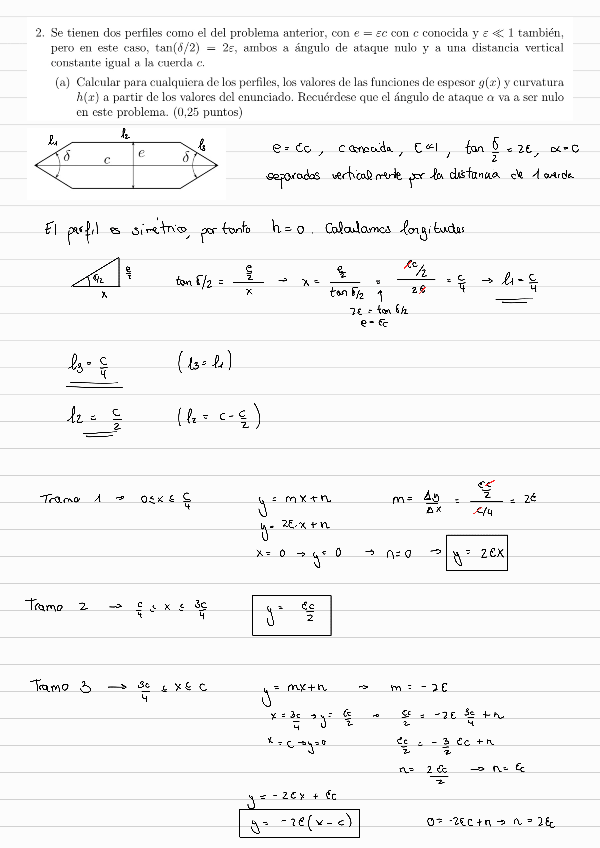 2. Se tienen dos perfiles como el del problema anterior, con e = εc con c conocida y ε ≪ 1 también,
pero en este caso, tan(δ/2) = 2ε, ambos a ángulo de ataque nulo y a una distancia vertical
constante igual a la cuerda c.
(a) Calcular para cualquiera de los perfiles, los valores de las funciones de espesor g(x) y curvatura
h(x) a partir de los valores del enunciado. Recuérdese que el ángulo de ataque α va a ser nulo
en este problema. (0,25 puntos)
l₁ l₂ l₃
δ c e δ
e = εc , c conocida , ε≪1 , tan δ/2 = 2ε, α=0
separados verticalmente por la distancia de 1 cuerda
El perfil es simétrico, por tanto h=0. Calculamos longitudes
δ/2 e/2 x
tan δ/2 = (e/2)/x → x = (e/2)/(tan δ/2) = (εc/2)/(2ε) = c/4 → l₁ = c/4
2ε = tan δ/2
e = εc
l₃ = c/4 (l₃ = l₁)
l₂ = c/2 (l₂ = c - c/2)
Tramo 1 → 0≤x≤ c/4 y = mx+n m = Δy/Δx = (εc/2)/(c/4) = 2ε
y = 2ε·x+n
x = 0 → y = 0 → n=0 → y = 2εx
Tramo 2 → c/4 ≤ x ≤ 3c/4 y = εc/2
Tramo 3 → 3c/4 ≤ x ≤ c y = mx+n → m = -2ε
x = 3c/4 → y = εc/2 → εc/2 = -2ε 3c/4 + n
x = c → y=0 εc/2 = - 3/2 εc + n
n = 2εc/2 → n = εc
y = -2εx + εc
y = -2ε(x-c) 0 = -2εc+n → n = 2εc